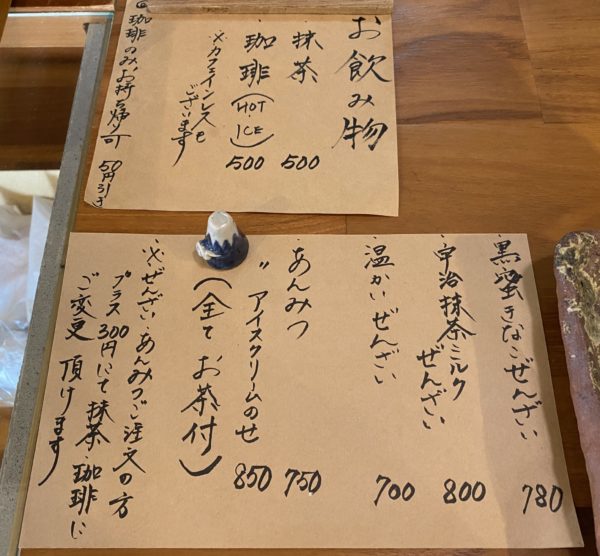 お飲み物
・抹茶 500
・珈琲(HOT・ICE) 500
※カフェインレスも
ございます
◎珈琲のみ、お持ち帰り可 50円引き
・黒蜜きなこぜんざい 780
・宇治抹茶ミルク
ぜんざい 800
・温かいぜんざい 700
・あんみつ 750
〃 アイスクリームのせ 850
(全てお茶付)
・※ぜんざい・あんみつご注文の方
プラス300円にて抹茶・珈琲に
ご変更頂けます